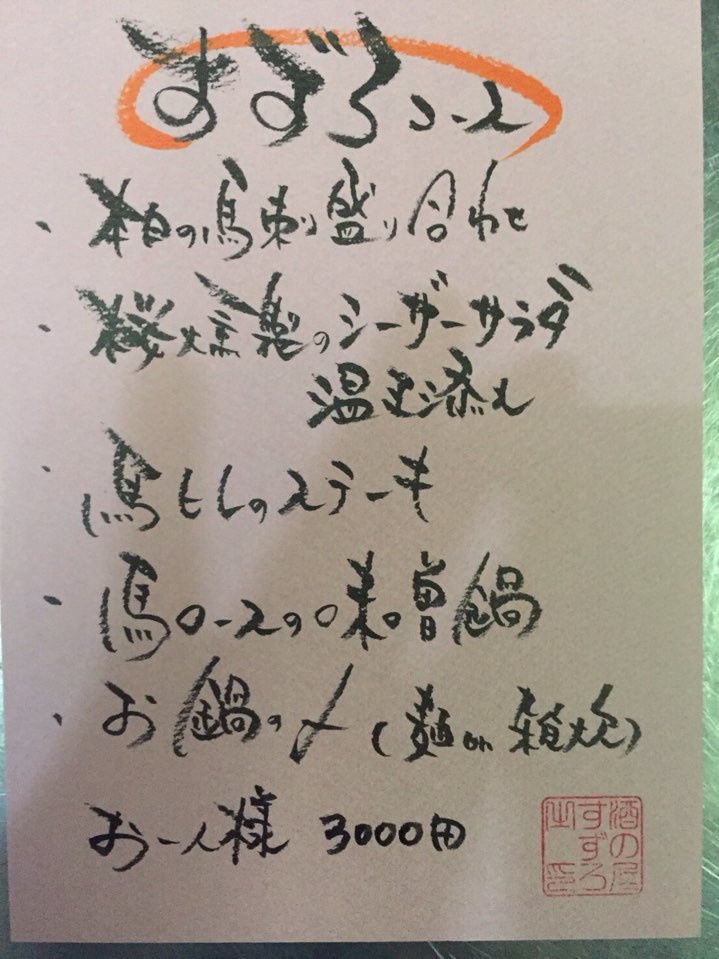 すずろコース
・本日の馬刺し盛り合わせ
・桜燻製のシーザーサラダ
温玉添え
・馬ももステーキ
・馬ロースの味噌鍋
・お鍋の〆(麺or雑炊)
お一人様 3000円
酒の屋
すずろ
之印